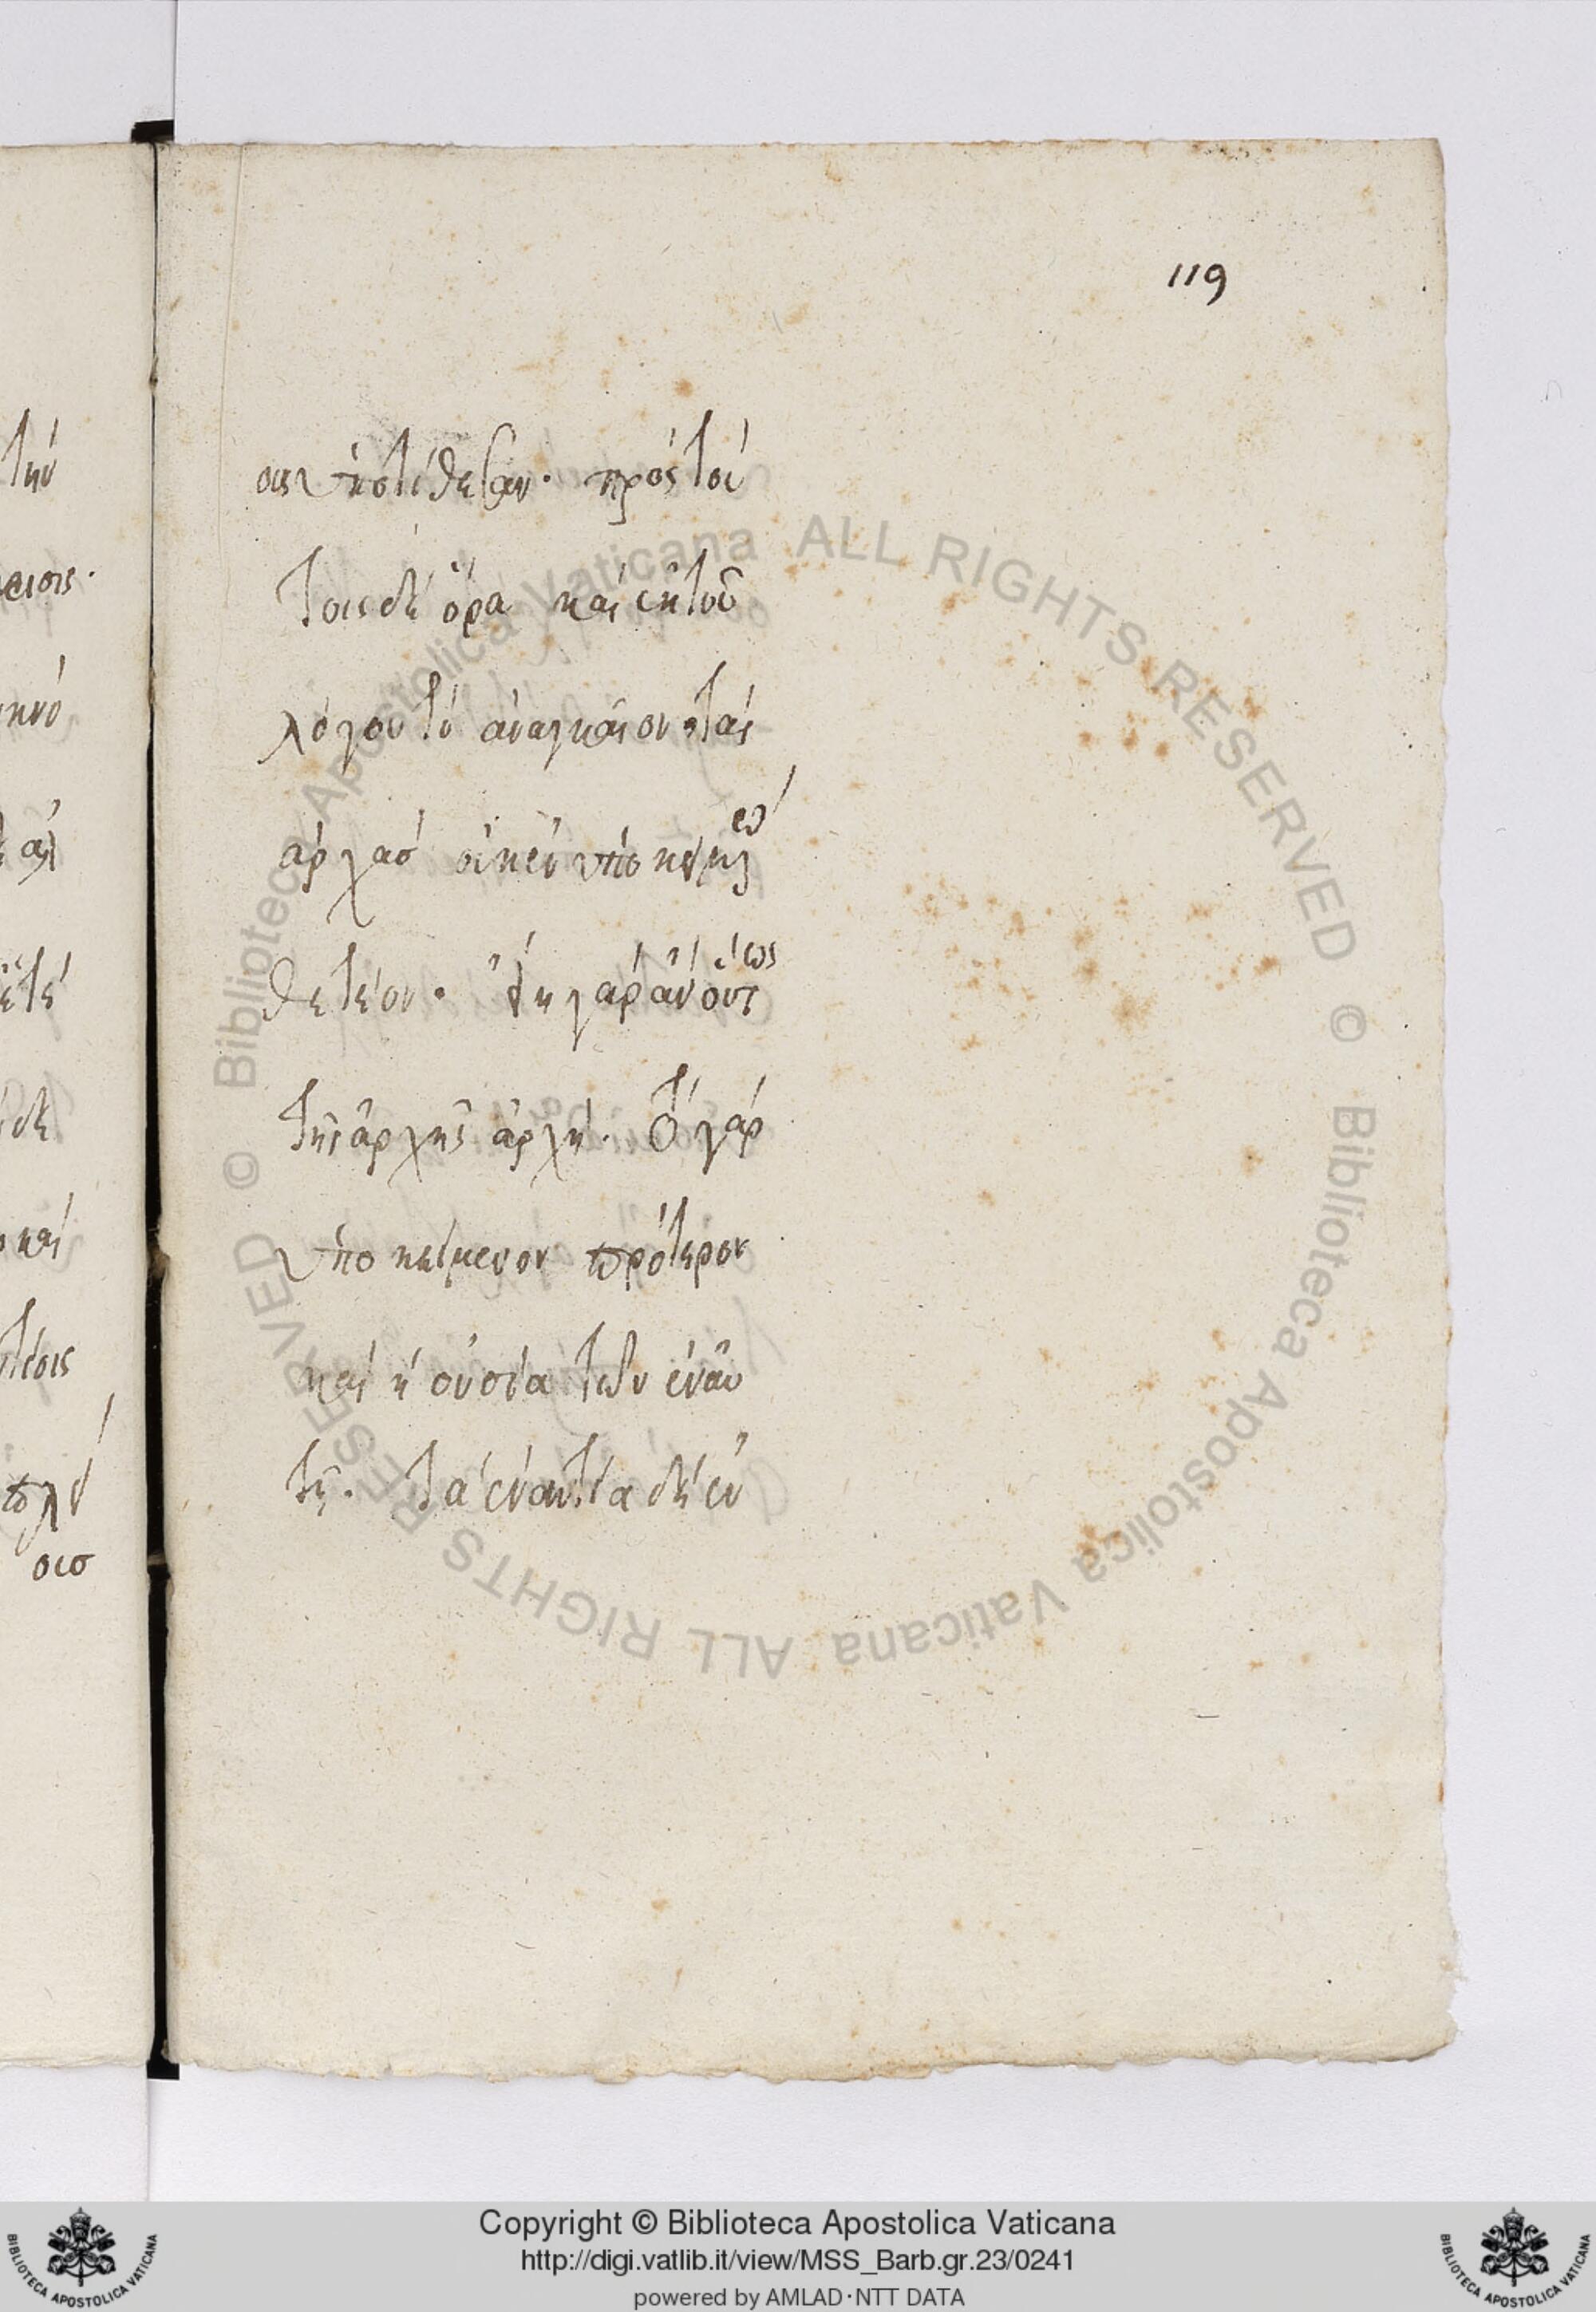 119
σις ὑπετίθεσαν. πρὸς τού
τοις δὲ ὅρα καὶ ἐκ τοῦ
λόγου τὸ ἀναγκαῖον τὰς
ἀρχὰσ οὐκ ἐν ὑποκειμένω
θετέον. εἴη γὰρ ἂν οὕτως
τῆς ἀρχῆς ἀρχή. τὸ γὰρ
ὑποκείμενον πρότερον
καὶ ἡ οὐσία τῶν ἐναν
τὰ ἐναντία δὲ ἐν
© Biblioteca Apostolica Vaticana ALL RIGHTS RESERVED © Biblioteca Apostolica Vaticana ALL RIGHTS RESERVED
Copyright © Biblioteca Apostolica Vaticana
http://digi.vatlib.it/view/MSS_Barb.gr.23/0241
powered by AMLAD·NTT DATA
BIBLIOTECA APOSTOLICA VATICANA
BIBLIOTECA APOSTOLICA VATICANA